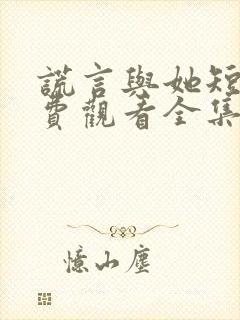 謊言與她短
費觀看全集
憶山塵